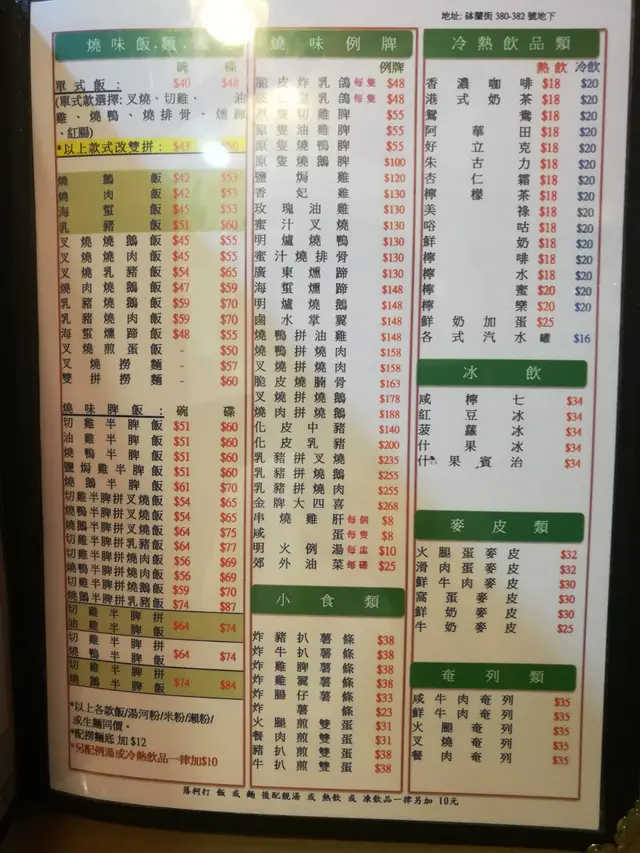 地址: 砵蘭街 380-382 號地下
燒味飯.麵
碗 碟
單式飯： $40 $48
(單式款選擇: 叉燒、切雞、油
雞、燒鴨、燒排骨、燻蹄
、紅腸)
*以上款式改雙拼： $43 $50
燒鵝飯 $42 $53
燒肉飯 $42 $53
海蜇飯 $45 $53
乳豬飯 $51 $60
叉燒燒鵝飯 $45 $55
叉燒燒肉飯 $45 $55
叉燒乳豬飯 $54 $65
燒肉燒鵝飯 $47 $59
乳豬燒鵝飯 $59 $70
乳豬燒肉飯 $59 $70
海蜇燻蹄飯 $48 $55
叉燒煎蛋飯 - $50
叉燒撈麵 - $57
雙拼撈麵 - $60
燒味脾飯： 碗 碟
切雞半脾飯 $51 $60
油雞半脾飯 $51 $60
燒鴨半脾飯 $51 $60
鹽焗雞半脾飯 $51 $60
燒鵝半脾飯 $61 $70
切雞半脾拼叉燒飯 $54 $65
燒鴨半脾拼叉燒飯 $54 $65
燒鵝半脾拼叉燒飯 $64 $75
切雞半脾拼乳豬飯 $64 $77
切雞半脾拼燒肉飯 $56 $69
燒鴨半脾拼燒肉飯 $56 $69
燒鵝半脾拼燒肉飯 $59 $70
燒鵝半脾拼乳豬飯 $74 $87
切雞半脾拼
油雞半脾飯 $64 $74
切雞半脾拼
燒鴨半脾飯 $64 $74
切雞半脾拼
燒鵝半脾飯 $74 $84
*以上各款飯/湯河粉/米粉/瀨粉/
或生麵同價。
*配撈麵底 加 $12
*另配例湯或冷熱飲品一律加$10
燒味例牌
例牌
脆皮炸乳鴿 每隻 $48
皇乳鴿 每隻 $48
隻切雞 $55
原隻油雞 $55
原隻燒鴨 $55
原隻燒鵝 $100
鹽焗雞 $120
香妃雞 $130
玫瑰油雞 $130
蜜汁叉燒 $130
明爐燒鴨 $130
蜜汁燒排骨 $130
廣東燻蹄 $130
海蜇燻蹄 $148
明爐燒鵝 $148
鹵水掌翼 $148
燒鴨拼油雞 $148
燒鴨拼燒肉 $158
燒鵝拼燒肉 $158
脆皮燒腩骨 $163
叉燒拼燒鵝 $178
燒肉拼燒鵝 $188
化皮中豬 $140
化皮乳豬 $200
乳豬拼叉燒 $235
乳豬拼燒鵝 $255
乳豬拼燒肉 $255
金牌大四喜 $268
串燒雞肝 每個 $8
咸蛋 每隻 $8
明火例湯 每盅 $10
郊外油菜 每碟 $25
小食類
炸豬扒薯條 $38
炸牛扒薯條 $38
炸雞脾薯條 $38
炸雞翼薯條 $38
炸腸仔薯條 $33
炸薯條 $23
火腿煎雙蛋 $31
餐肉煎雙蛋 $31
豬扒煎雙蛋 $38
牛扒煎雙蛋 $38
冷熱飲品類
熱飲 冷飲
香濃咖啡 $18 $20
港式奶茶 $18 $20
鴛鴦 $18 $20
阿華田 $18 $20
好立克 $18 $20
朱古力 $18 $20
杏仁霜 $18 $20
檸檬茶 $18 $20
美祿 $18 $20
咯咕 $18 $20
鮮奶 $18 $20
檸啡 $18 $20
檸水 $18 $20
檸蜜 $20 $20
檸樂 $20 $20
鮮奶加蛋 $25
各式汽水 罐 $16
冰飲
咸檸七 $34
紅豆冰 $34
菠蘿冰 $34
什果冰 $34
什果賓治 $34
麥皮類
火腿蛋麥皮 $32
滑肉蛋麥皮 $32
鮮牛肉麥皮 $30
窩蛋麥皮 $30
鮮奶麥皮 $30
牛奶麥皮 $25
奄列類
咸牛肉奄列 $35
鮮牛肉奄列 $35
火腿奄列 $35
叉燒奄列 $35
餐肉奄列 $35
落柯打 飯 或 麵 後配靚湯 或 熱飲 或 凍飲品一律另加 10元